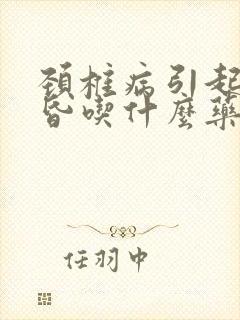 頚椎病引起
昏喫什麼藥
任羽中